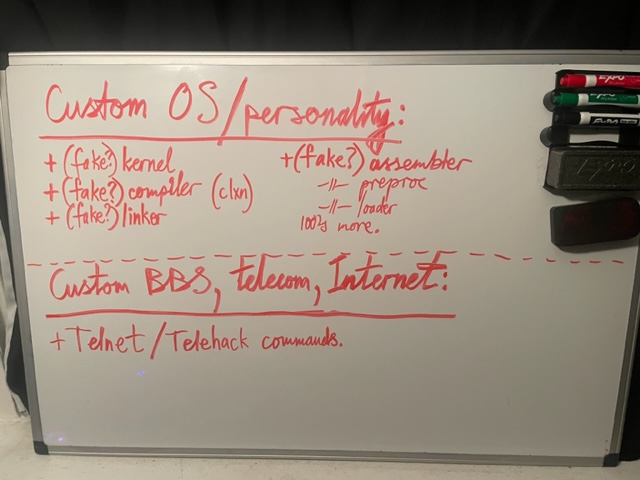 Custom OS/personality:
+ (fake?) kernel
+ (fake?) compiler (clxn)
+ (fake?) linker
+ (fake?) assembler
-||- preproc
-||- loader
100's more.
Custom BBS, telecom, Internet:
+ Telnet/Telehack commands.
EXPO
EXPO
EXPO